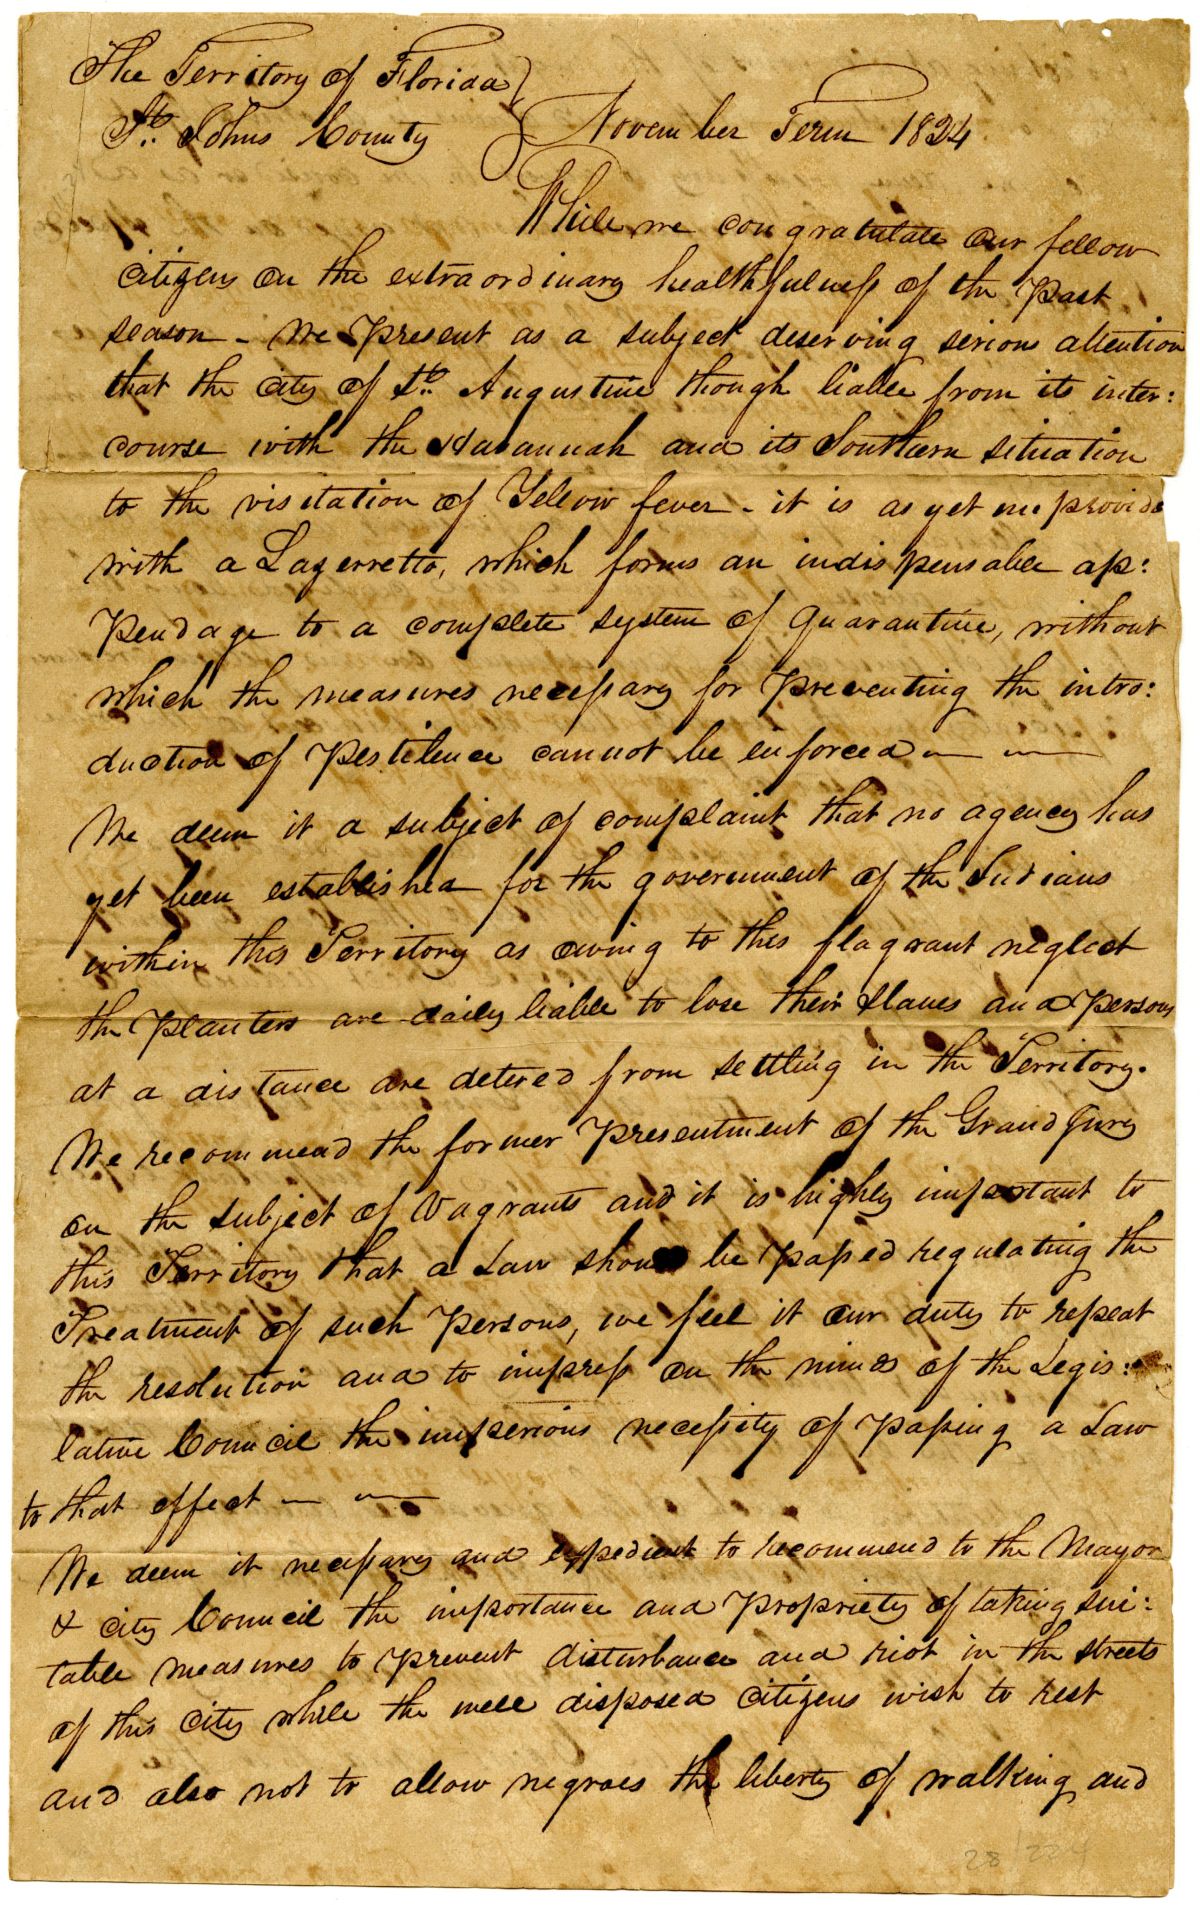 The Territory of Florida
St. Johns County } November Term 1824
While we congratulate our fellow
citizens on the extraordinary healthfulness of the past
season - We present as a subject deserving serious attention
that the city of St. Augustine though liable from its inter:
course with the Havannah and its Southern situation
to the visitation of Yellow fever - it is as yet unprovide
with a Lazerretto, which forms an indispensable ap:
pendage to a complete system of Quarantine, without
which the measures necessary for preventing the intro:
duction of Pestilence cannot be enforced — —
We deem it a subject of complaint that no agency has
yet been established for the government of the Indians
within this Territory as owing to this flagrant neglect
the Planters are daily liable to lose their slaves and persons
at a distance are detered from settling in the Territory.
We recommend the former Presentment of the Grand Jury
on the subject of Vagrants and it is highly important to
this Territory that a Law should be passed regulating the
Treatment of such Persons, we feel it our duty to repeat
the resolution and to impress on the minds of the Legis:
lative Council the imperious necessity of passing a Law
to that effect — —
We deem it necessary and expedient to recommend to the Mayor
& city Council the importance and propriety of taking sui:
table measures to prevent disturbance and riot in the streets
of this city while the well disposed citizens wish to rest
and also not to allow negroes the liberty of walking and
28/224